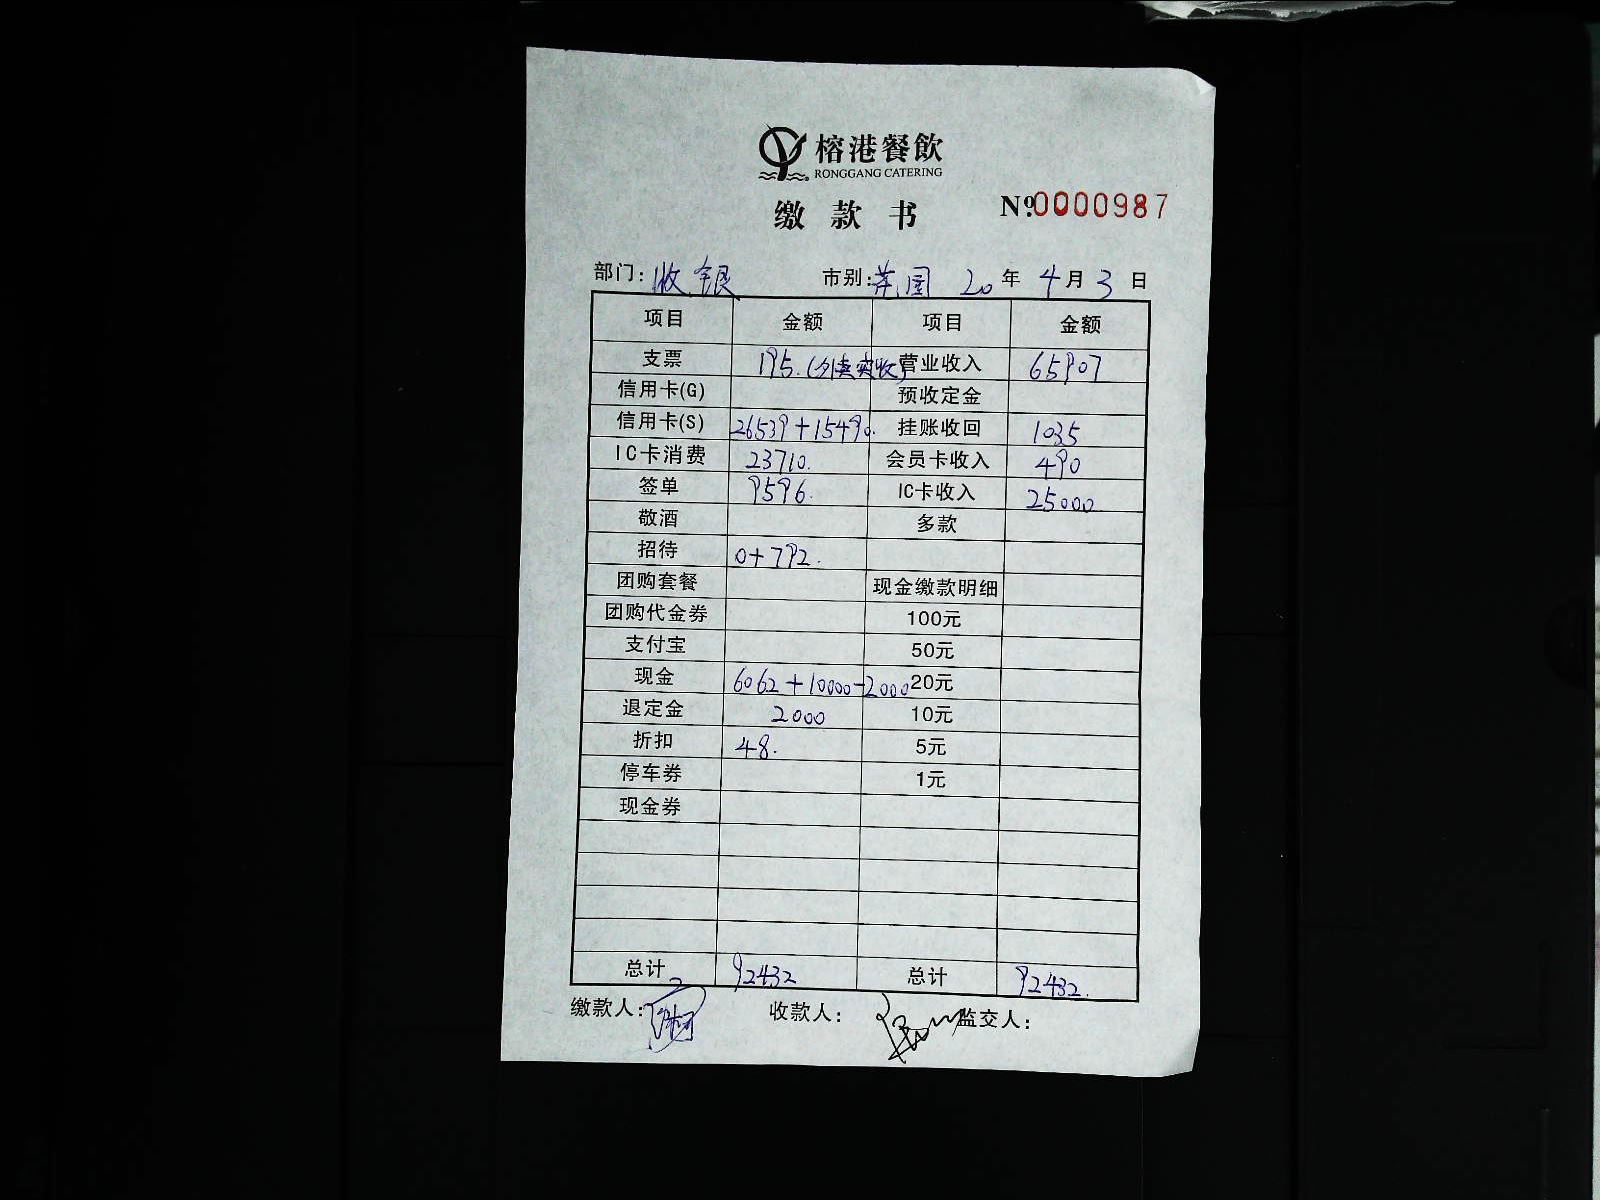 榕港餐飲
RONGGANG CATERING
缴款书 №0000987
部门: 收银 市别: 莞园 20年4月3日
项目 金额 项目 金额
支票 195.(外卖实收) 营业收入 65907
信用卡(G) 预收定金
信用卡(S) 26539+15490. 挂账收回 1035
IC卡消费 23710. 会员卡收入 490
签单 9596. IC卡收入 25000
敬酒 多款
招待 0+792.
团购套餐 现金缴款明细
团购代金券 100元
支付宝 50元
现金 6062+10000-2000 20元
退定金 2000 10元
折扣 48. 5元
停车券 1元
现金券
总计 92432 总计 92432.
缴款人: 收款人: 监交人: